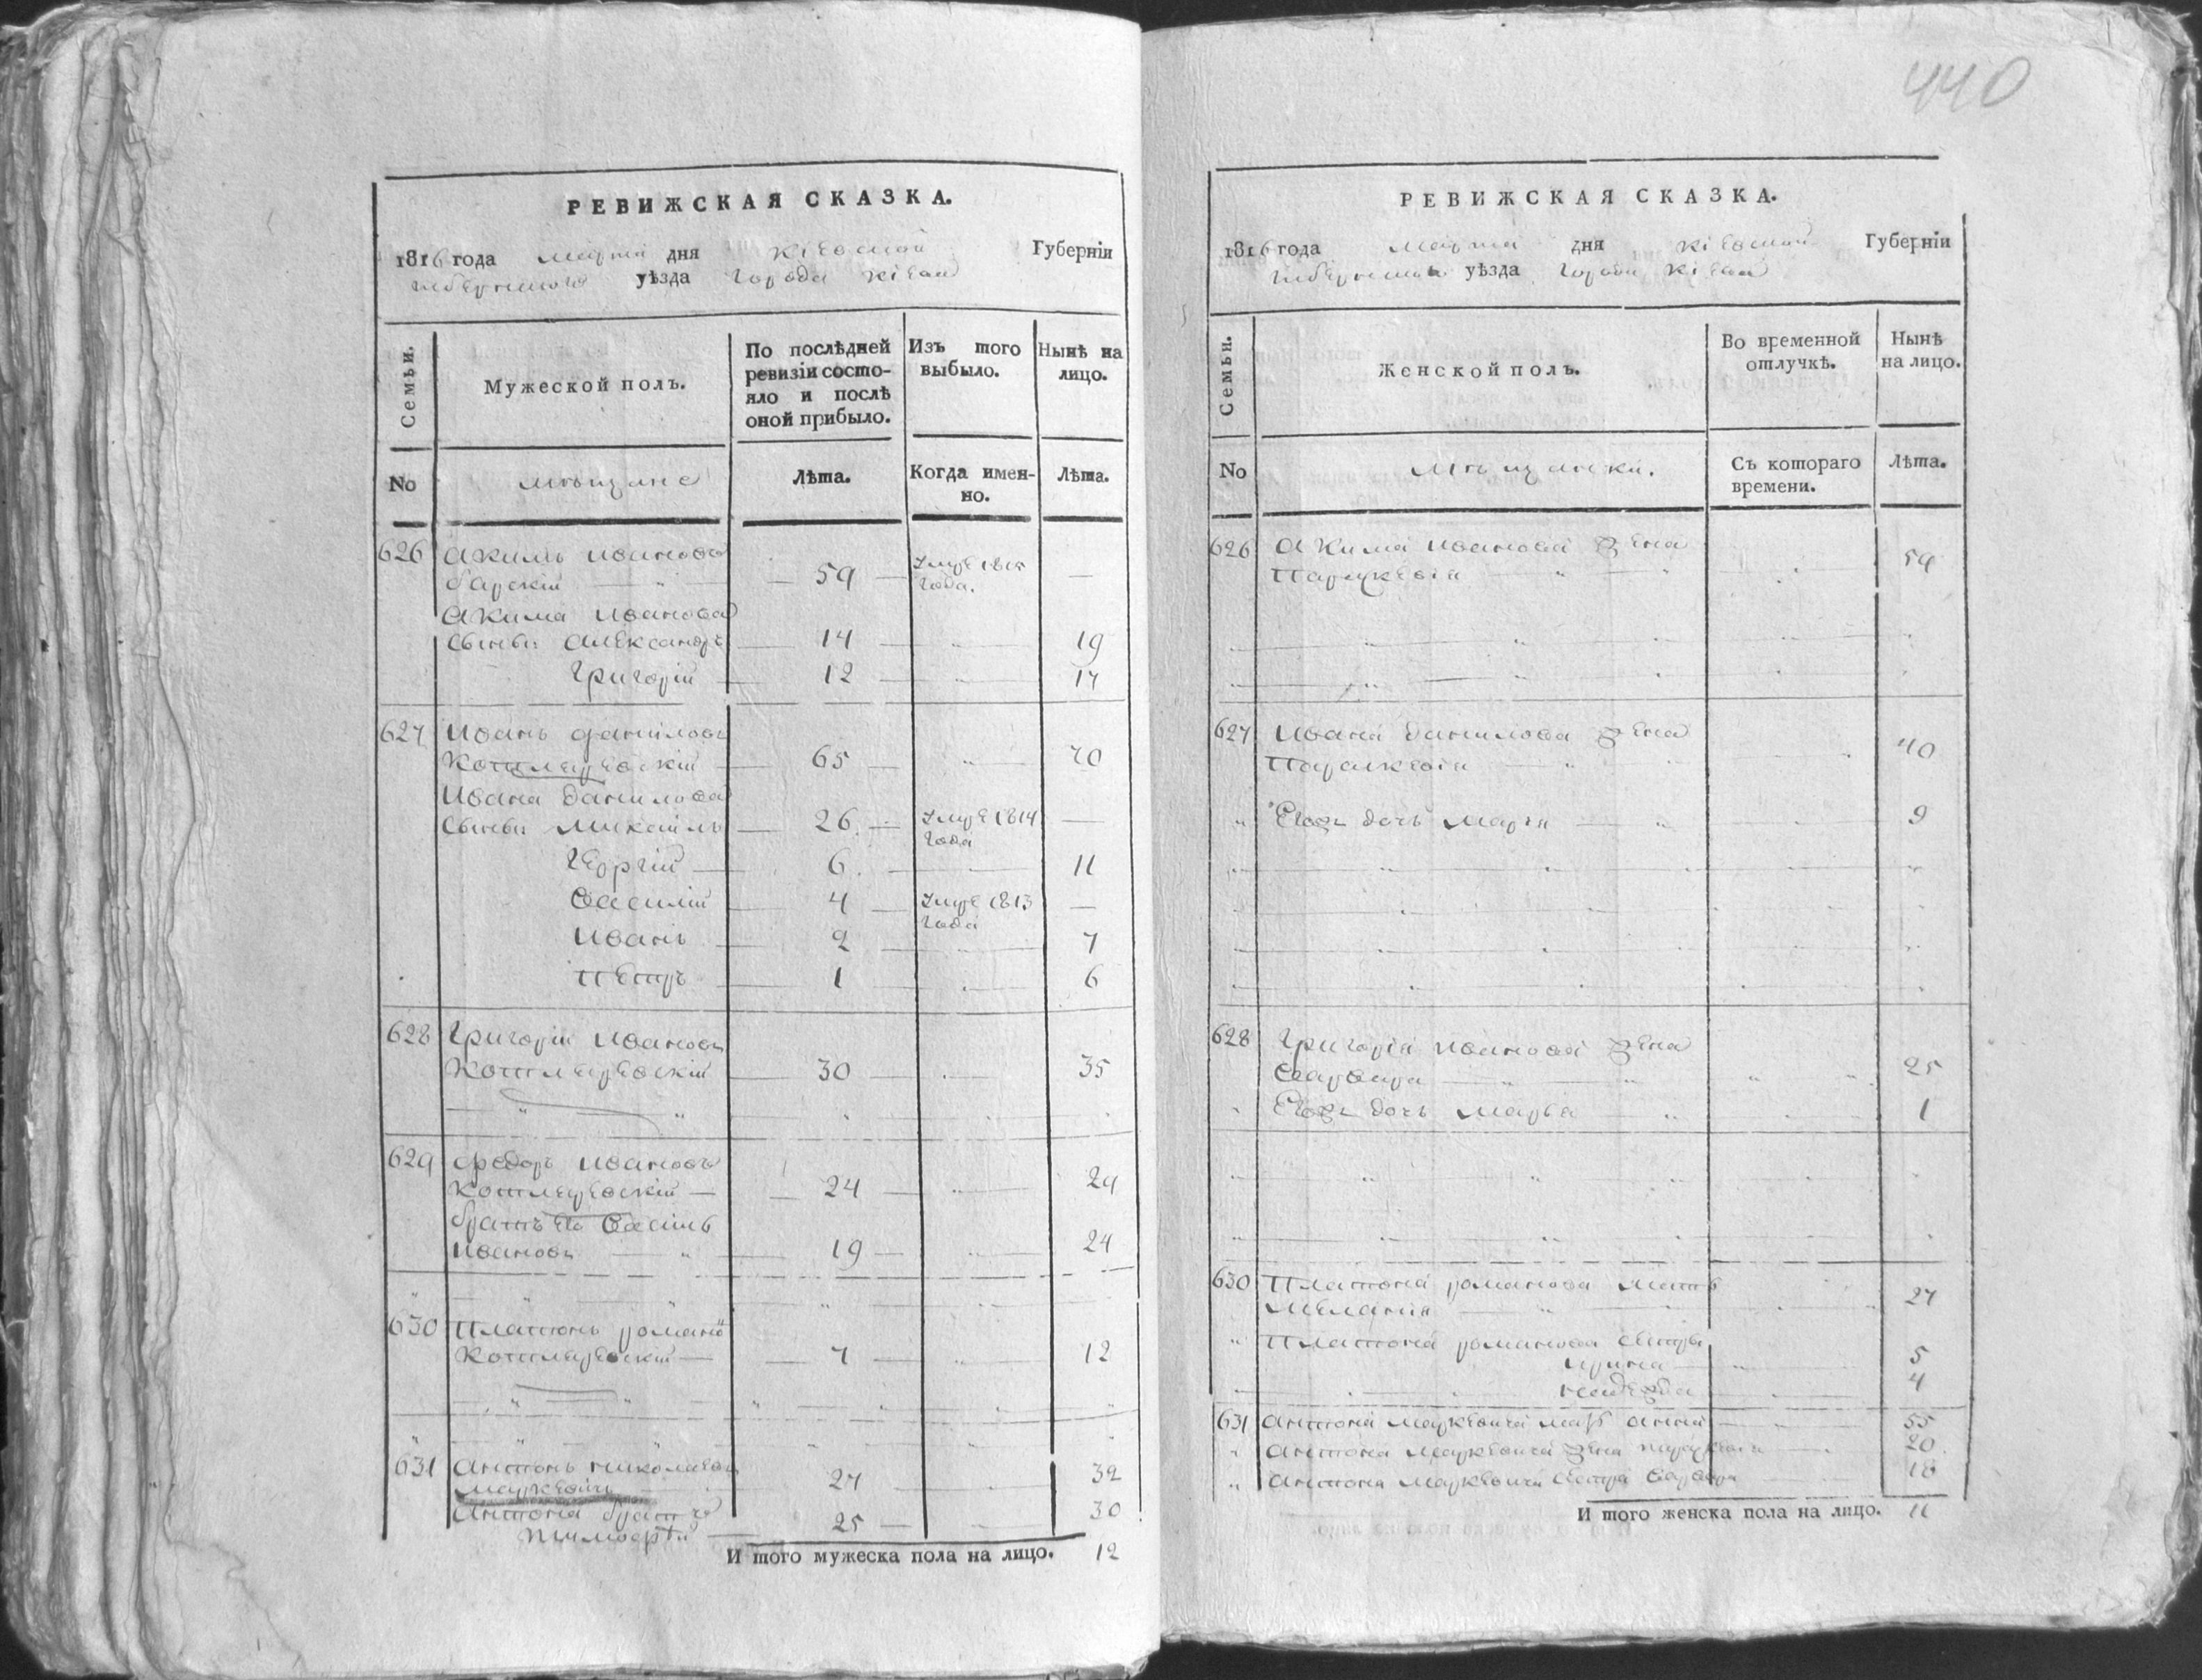 440
РЕВИЖСКАЯ СКАЗКА.
1816 года марта дня Кіевской Губерніи
уѣзда города Кіева
Семьи.
Мужеской полъ.
По послѣдней ревизіи состо-
яло и послѣ
оной прибыло.
Изъ того
выбыло.
Нынѣ на
лицо.
No
мѣщане
Лѣта.
Когда имен-
но.
Лѣта.
626 Акимъ Ивановъ
барскій 59 Умре 1815 года.
Акима Иванова
сыновья Александръ 14 19
Григорій 12 17
627 Иванъ Даниловъ
Котляревскій 65 70
Ивана Данилова
сыновья Михаилъ 26 Умре 1814 года
Георгій 6 11
Василій 4 Умре 1813 года
Иванъ 2 7
Петръ 1 6
628 Григорій Ивановъ
Котляревскій 30 35
629 Федоръ Ивановъ
Котляревскій 24 29
братъ его Василь
Ивановъ 19 24
630 Платонъ Романо
Котляревскій 7 12
631 Антонъ Николаевъ
Маркевичь 27 32
Антона братъ
Тимофѣй 25 30
И того мужеска пола на лицо. 12
РЕВИЖСКАЯ СКАЗКА.
1816 года марта дня Кіевской Губерніи
уѣзда города Кіева
Семьи.
Женской полъ.
Во временной
отлучкѣ.
Нынѣ
на лицо.
No
мѣщанки.
Съ котораго
времени.
Лѣта.
626 Акима Иванова жена
Параскевія 54
627 Ивана Данилова жена
Параскевія 40
Егожъ дочь Марія 9
628 Григорія Иванова жена
Варвара 25
Егожъ дочь Марѳа 1
630 Платона Романова мать
Меланія 27
Платона Романова сестры
Ирина 5
Надежда 4
631 Антона Маркевича мать Анна 55
Антона Маркевича жена 20
Антона Маркевича сестра Варвара 18
И того женска пола на лицо. 11